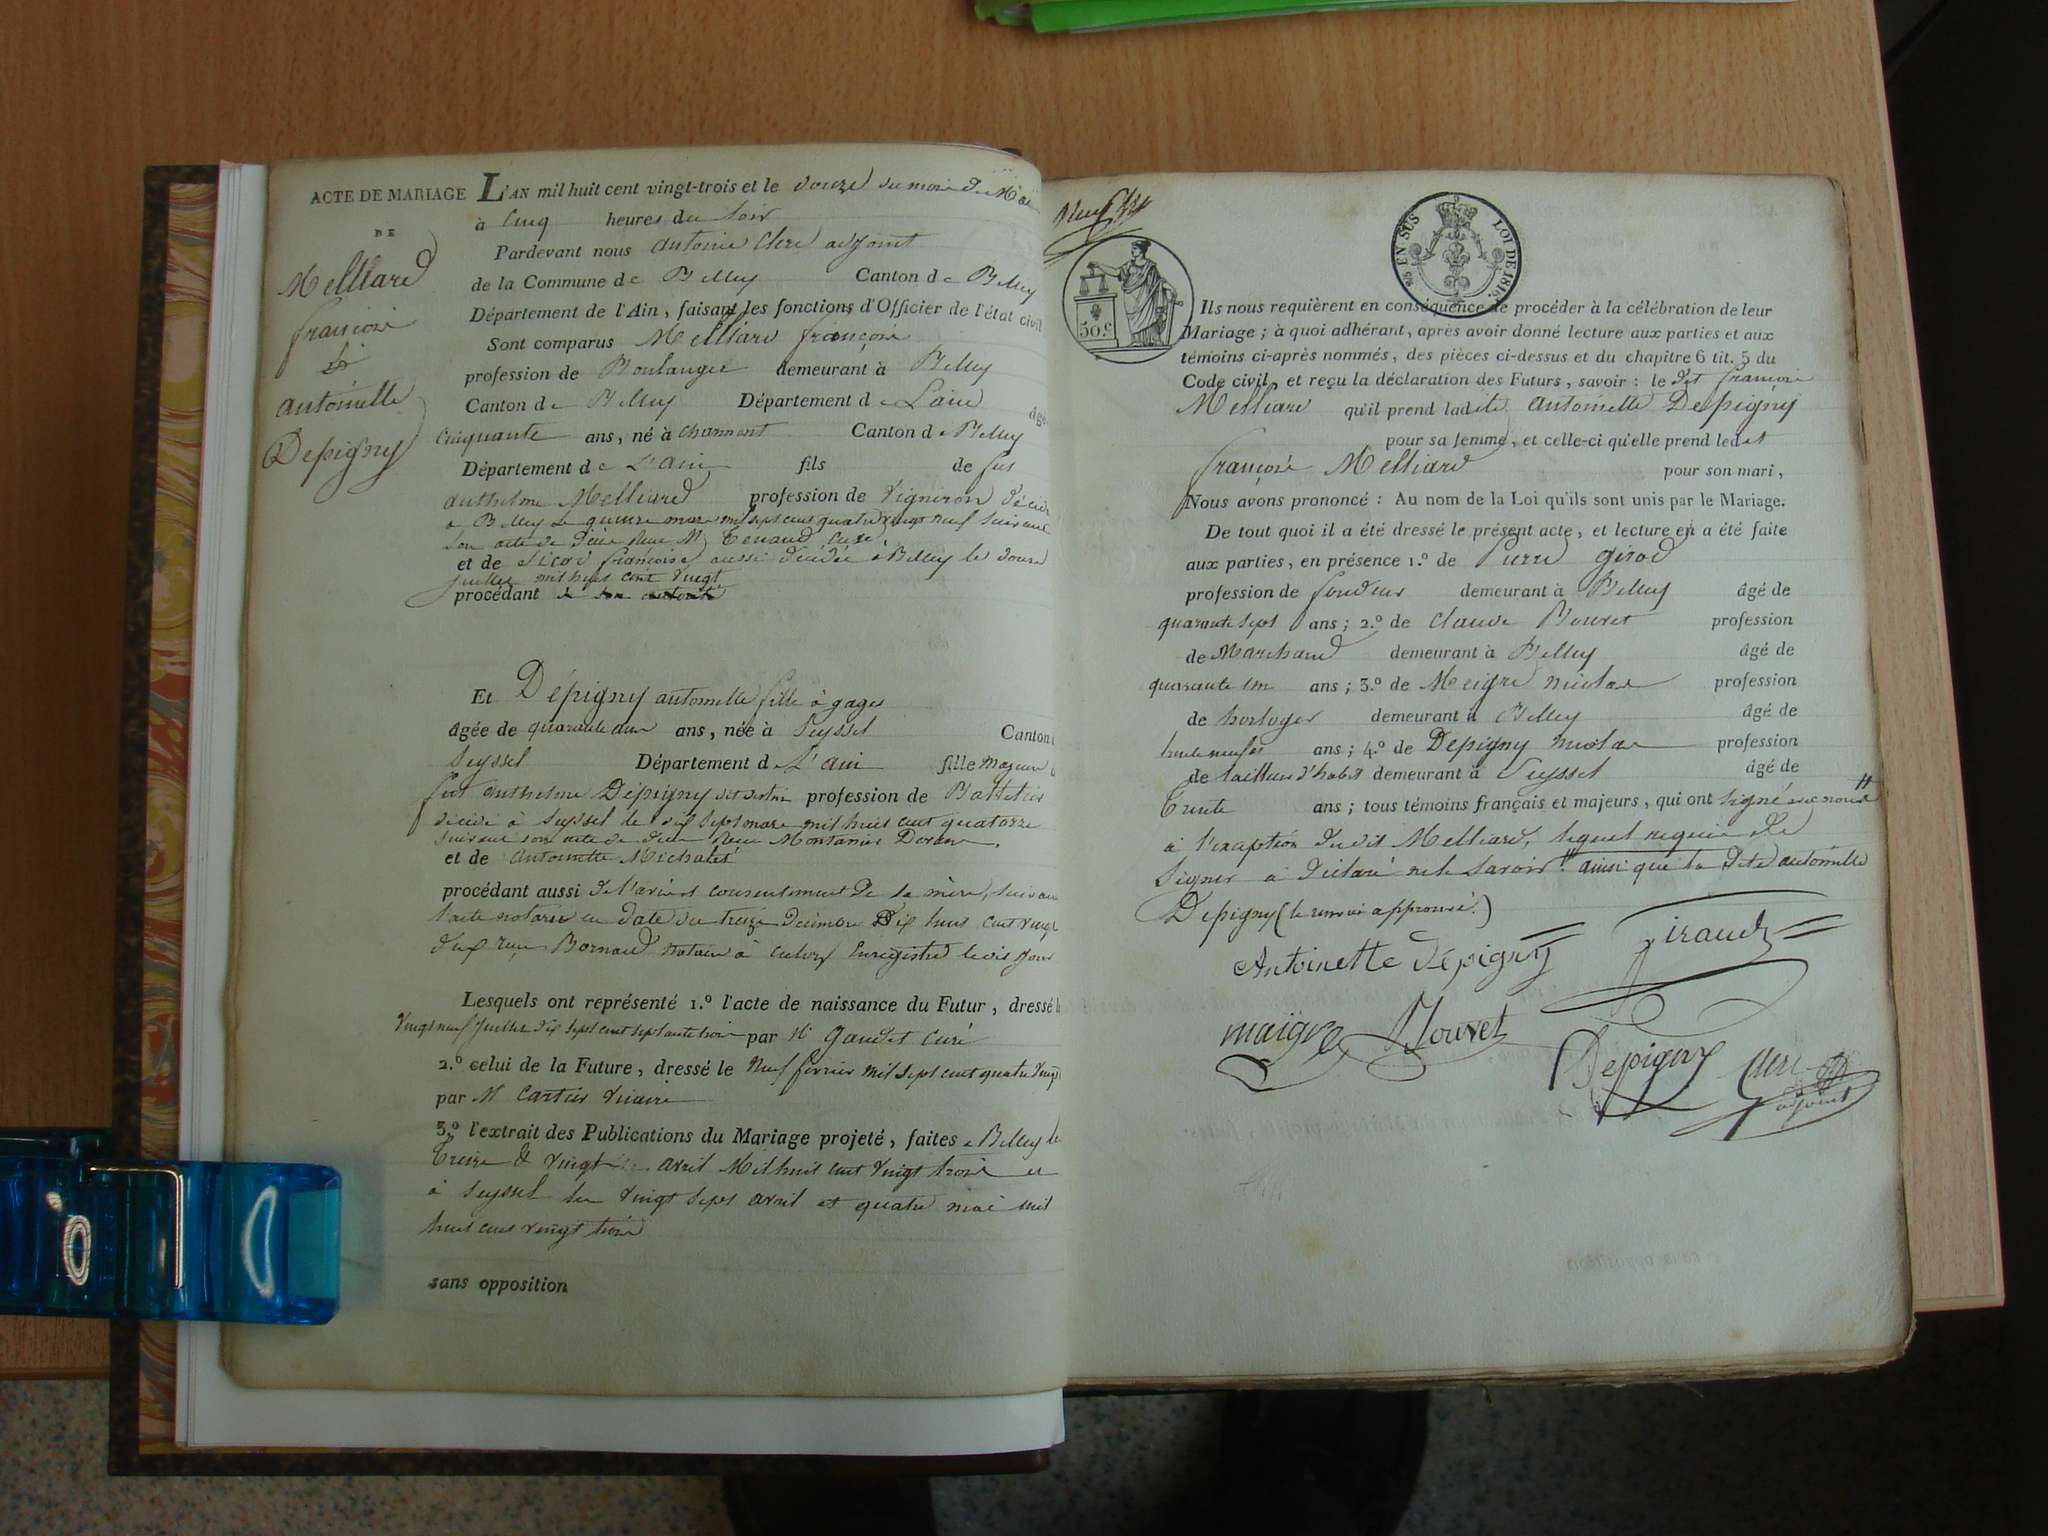 ACTE DE MARIAGE
DE
Melliard
françois
&
antoinette
Depigny
L'AN mil huit cent vingt-trois et le douze du mois de Mai
à Cinq heures du soir
Pardevant nous antoine Clerc adjoint
de la Commune de Belley Canton de Belley
Département de l'Ain, faisant les fonctions d'Officier de l'état civil
Sont comparus Melliard françois
profession de Boulanger demeurant à Belley
Canton de Belley Département de Lain âgé
Cinquante ans, né à Canton de Belley
Département de L'ain fils de feu
anthelme Melliard profession de Vigneron décédé
a Belley le quinze mars mil sept cent quatre vingt neuf suivant
son acte de décès reçu Mr curé
et de françoise aussi décédée à Belley le douze
juillet mil huit cent vingt
procédant
Et Dépigny antoinette fille à gages
âgée de quarante ans, née à Seyssel Canton
Seyssel Département de L'ain fille majeure
feu anthelme Dépigny profession de Battelier
décédé à Seyssel le dix sept mars mil huit cent quatorze
suivant son acte de décès reçu Montanier
et de antoinette Michalet
procédant aussi de l'avis et consentement de sa mère, suivant
l'acte notarié en date du treize décembre dix huit cent vingt
deux reçu Bornand notaire à culoz Enregistré
Lesquels ont représenté 1.º l'acte de naissance du Futur, dressé le
Vingt neuf juillet dix sept cent septante trois par Mr Gaudet Curé
2.º celui de la Future, dressé le Neuf février mil sept cent quatre vingt
par M Cartier Vicaire
3.º l'extrait des Publications du Mariage projeté, faites a Belley le
Treize & vingt avril Mil huit cent vingt trois et
à Seyssel les vingt sept avril et quatre mai mil
huit cent vingt trois
sans opposition
50 c
EN SUS
LOI DE 1816.
Ils nous requièrent en conséquence de procéder à la célébration de leur
Mariage ; à quoi adhérant, après avoir donné lecture aux parties et aux
témoins ci-après nommés, des pièces ci-dessus et du chapitre 6 tit. 5 du
Code civil, et reçu la déclaration des Futurs, savoir : le dit françois
Melliard qu'il prend ladite antoinette Depigny
pour sa femme, et celle-ci qu'elle prend ledit
françois Melliard pour son mari,
Nous avons prononcé : Au nom de la Loi qu'ils sont unis par le Mariage.
De tout quoi il a été dressé le présent acte, et lecture en a été faite
aux parties, en présence 1.º de Pierre girod
profession de fondeur demeurant à Belley âgé de
quarante sept ans ; 2.º de Claude Bouvet profession
de Marchand demeurant à Belley âgé de
quarante un ans ; 3.º de Meigre nicolas profession
de horloger demeurant à Belley âgé de
trente neuf ans ; 4.º de Depigny nicolas profession
de tailleur d'habit demeurant à Seyssel âgé de
Trente ans ; tous témoins français et majeurs, qui ont signé avec nous #
à l'exception du dit Melliard, lequel requis de
Signer a déclaré ne le savoir. # ainsi que la dite antoinette
Depigny (le renvoi approuvé.)
Antoinette dépigny Giraud
maigre Bouvet
Depigny Clerc
adjoint